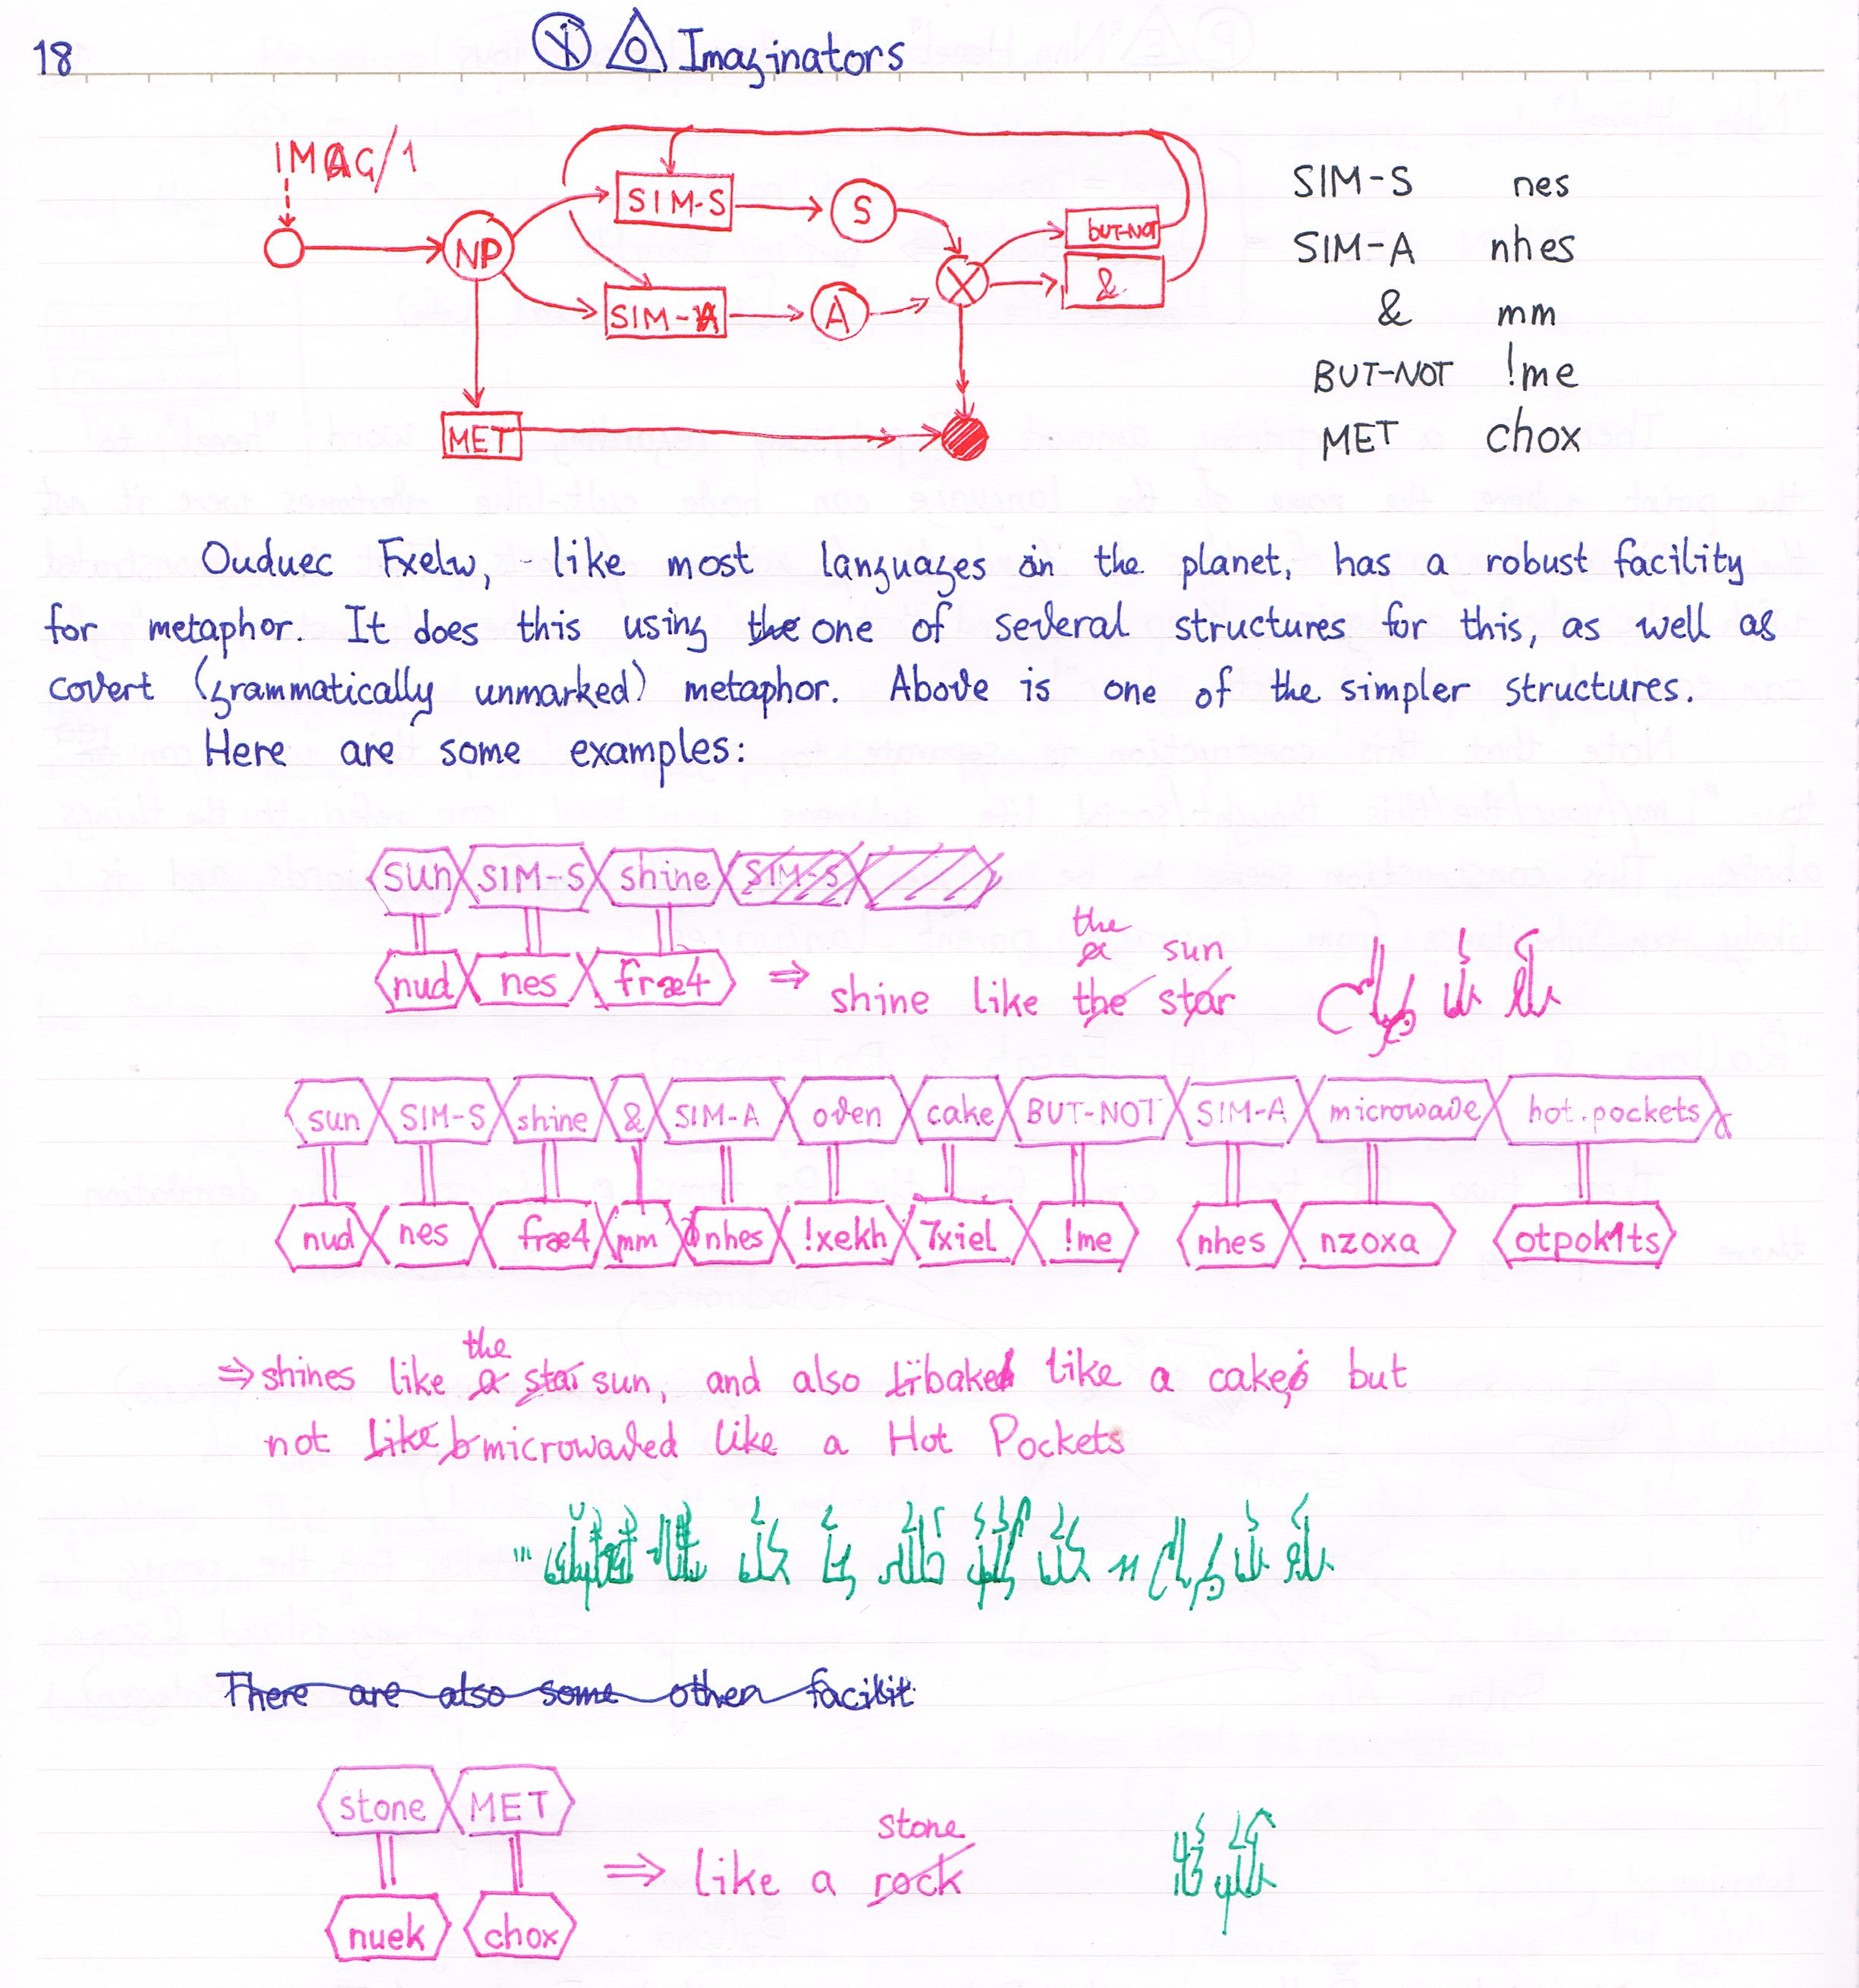 18
Imaginators
IMAG/1
NP
SIM-S
S
SIM-A
A
X
BUT-NOT
&
MET
SIM-S nes
SIM-A nhes
& mm
BUT-NOT !me
MET chox
Ouduec Fxelw, like most languages on the planet, has a robust facility
for metaphor. It does this using the one of several structures for this, as well as
covert (grammatically unmarked) metaphor. Above is one of the simpler structures.
Here are some examples:
sun SIM-S shine SIM-S
nud nes fræ4
the
a sun
⇒ shine like the star
sun SIM-S shine & SIM-A oven cake BUT-NOT SIM-A microwave hot.pockets
nud nes fræ4 mm nhes !xekh 7xiel !me nhes nzoxa otpok1ts
the
⇒ shines like a star sun, and also baked like a cake, but
not like microwaved like a Hot Pockets
There are also some other facilit
stone MET
nuek chox
stone
⇒ like a rock